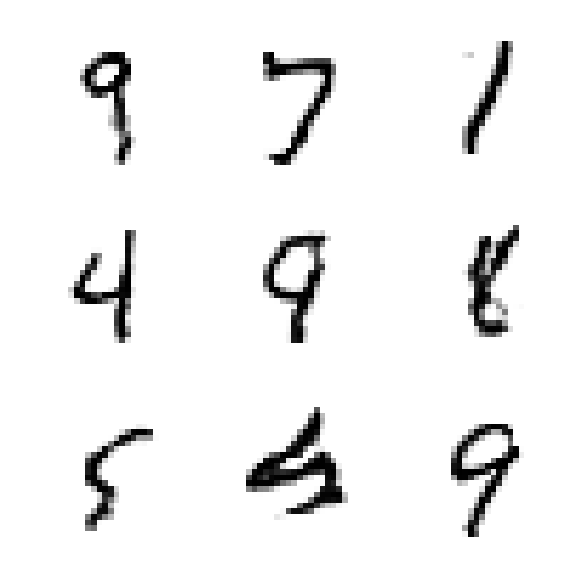 9 7 1
4 9 8
5 5 9